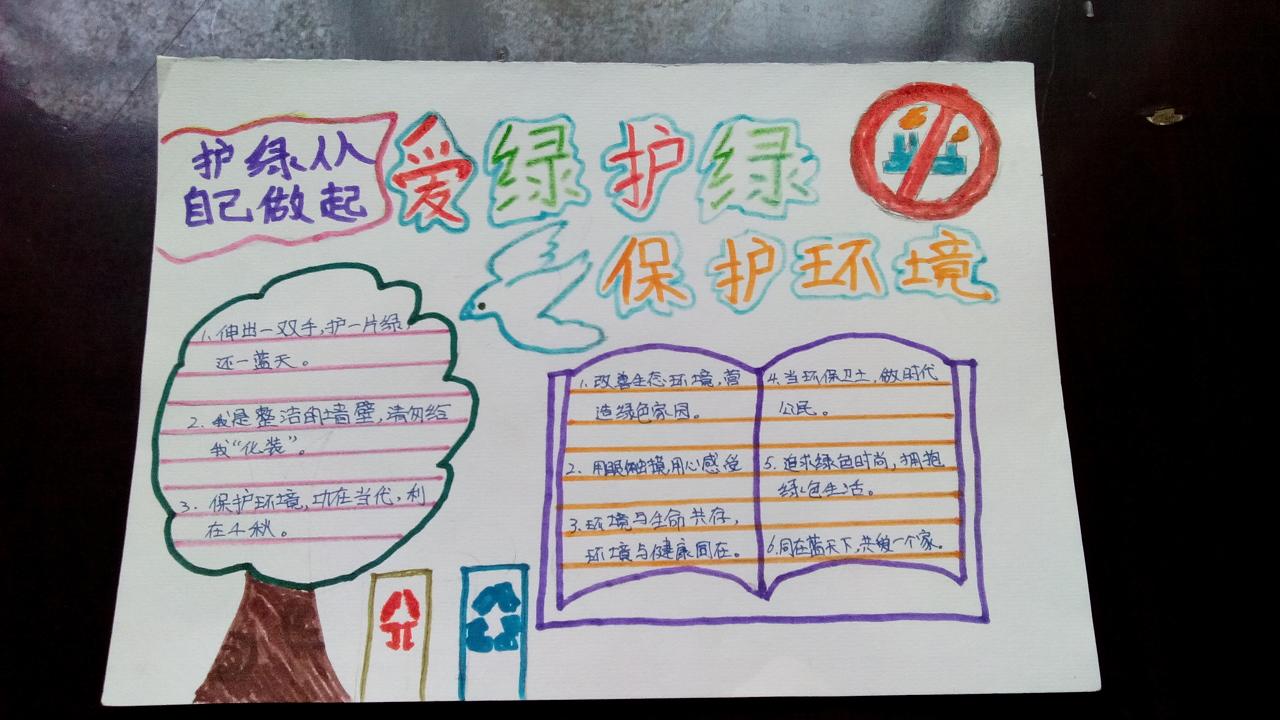 护绿从
自己做起
爱绿护绿
保护环境
1. 伸出一双手,护一片绿
还一蓝天。
2. 我是整洁的墙壁,请勿给
我“化装”。
3. 保护环境,功在当代,利
在千秋。
1. 改善生态环境,营
造绿色家园。
2. 用眼触摸,用心感受
3. 环境与生命共存,
环境与健康同在。
4. 当环保卫士,做时代
公民。
5. 追求绿色时尚,拥抱
绿色生活。
6. 同在蓝天下,共一个家。